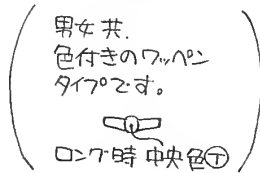 男女共.
色付きのワッペン
タイプです。
ロング時 中央色㊦